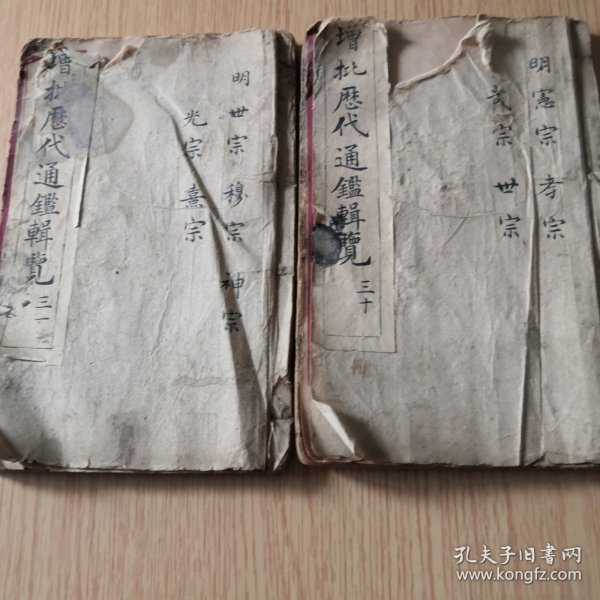 增批歷代通鑑輯覽 三一
明世宗 穆宗 神宗
光宗 熹宗
增批歷代通鑑輯覽 三十
明憲宗 孝宗
武宗 世宗
孔夫子旧书网
www.kongfz.com